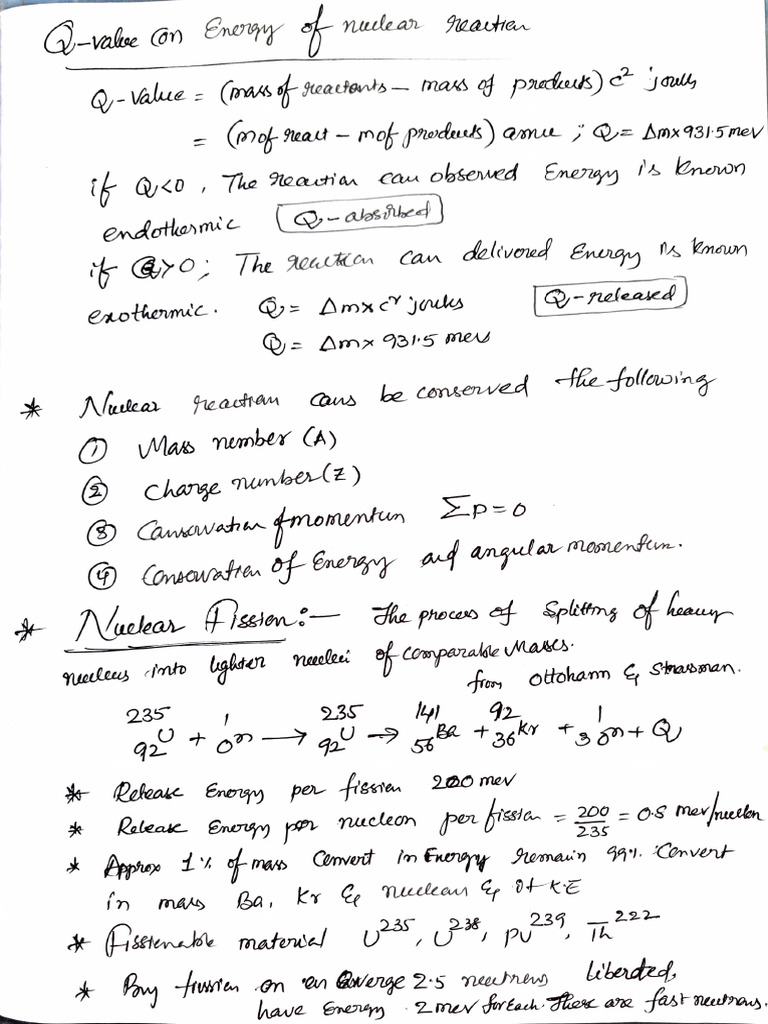 Q-value (on Energy of nuclear reaction
Q-Value = (mass of reactants - mass of products) c² jouls
= (m of react - m of products) amu ; Q = Δm x 931.5 mev
if Q<0 , The reaction can observed Energy is known
endothermic Q-absirbed
if Q>0 ; The reaction can delivered Energy is known
exothermic. Q = Δm x c² jouls Q-released
Q = Δm x 931.5 mev
* Nuclear reaction cans be conserved the following
① Mass number (A)
② Charge number (Z)
③ Conservation of momentum Σp = 0
④ Conservation of Energy and angular momentum.
* Nuclear Fission:- The process of splitting of heavy
nucleus into lighter nucleei of comparable Masses.
from Ottohann & Strasman.
²³⁵₉₂U + ¹₀n → ²³⁵₉₂U → ¹⁴¹₅₆Ba + ⁹²₃₆Kr + 3 ¹₀n + Q
* Release Energy per fission 200 mev
* Release Energy per nucleon per fission = 200/235 = 0.8 mev/nucleon
* Approx 1% of mass Convert in Energy remain 99% Convert
in mass Ba, Kr & nuclean & of K.E
* Fissionable material U²³⁵, U²³⁸, Pu²³⁹, Th²²²
* By fission on an average 2.5 neutrons liberated,
have Energy 2 mev for Each. These are fast neutrons.